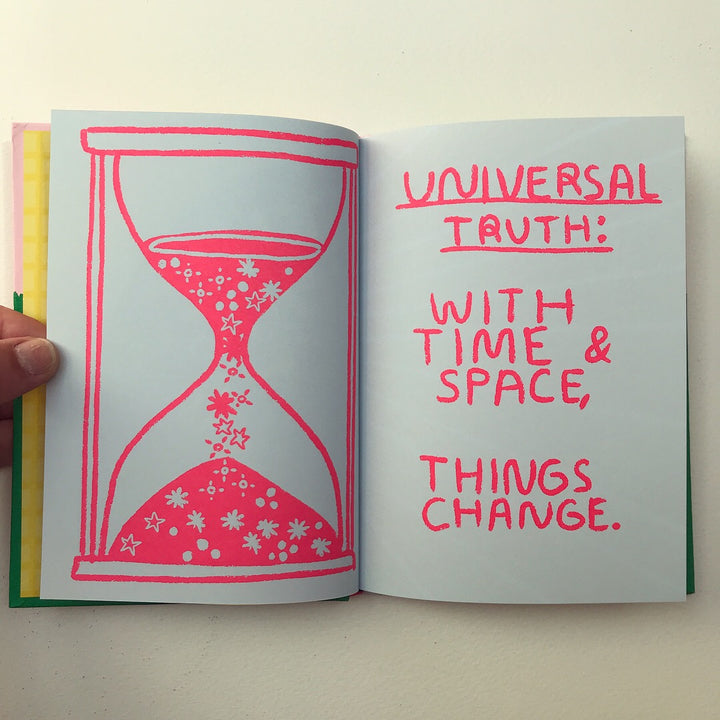 UNIVERSAL
TRUTH:
WITH
TIME &
SPACE,
THINGS
CHANGE.